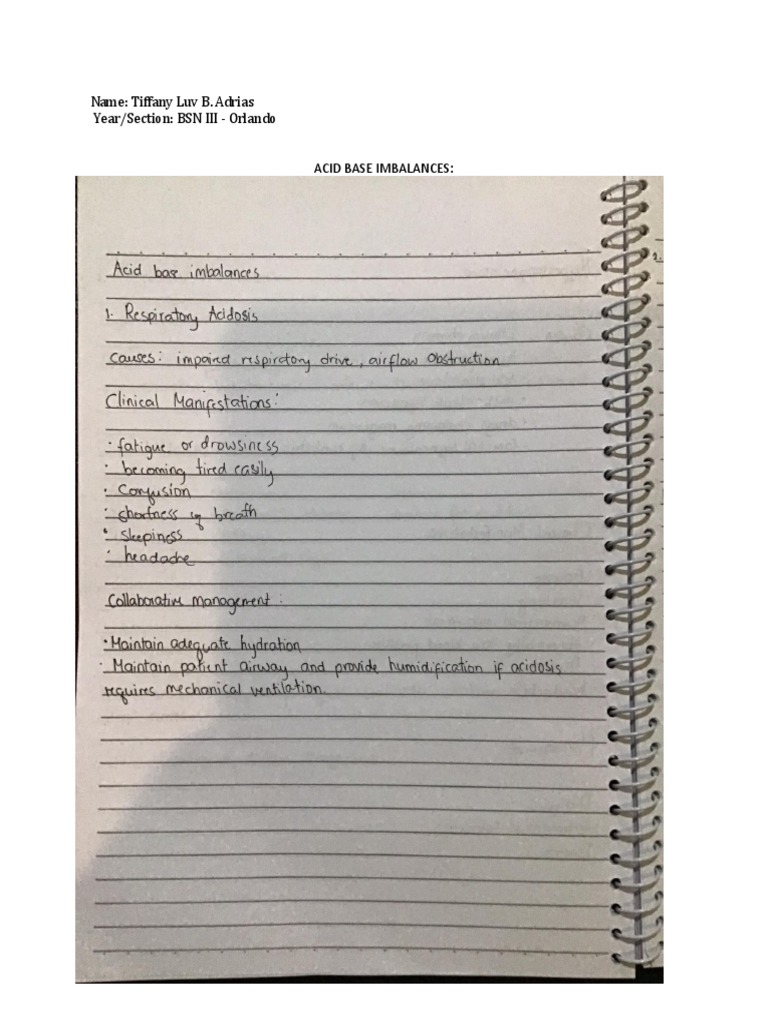 Name: Tiffany Luv B. Adrias
Year/Section: BSN III - Orlando
ACID BASE IMBALANCES:
Acid base imbalances
1. Respiratory Acidosis
Causes: impaired respiratory drive, airflow obstruction
Clinical Manifestations:
· fatigue or drowsiness
· becoming tired easily
· Confusion
· shortness of breath
· sleepiness
· headache
Collaborative management:
· Maintain adequate hydration
· Maintain patient airway and provide humidification if acidosis
requires mechanical ventilation.